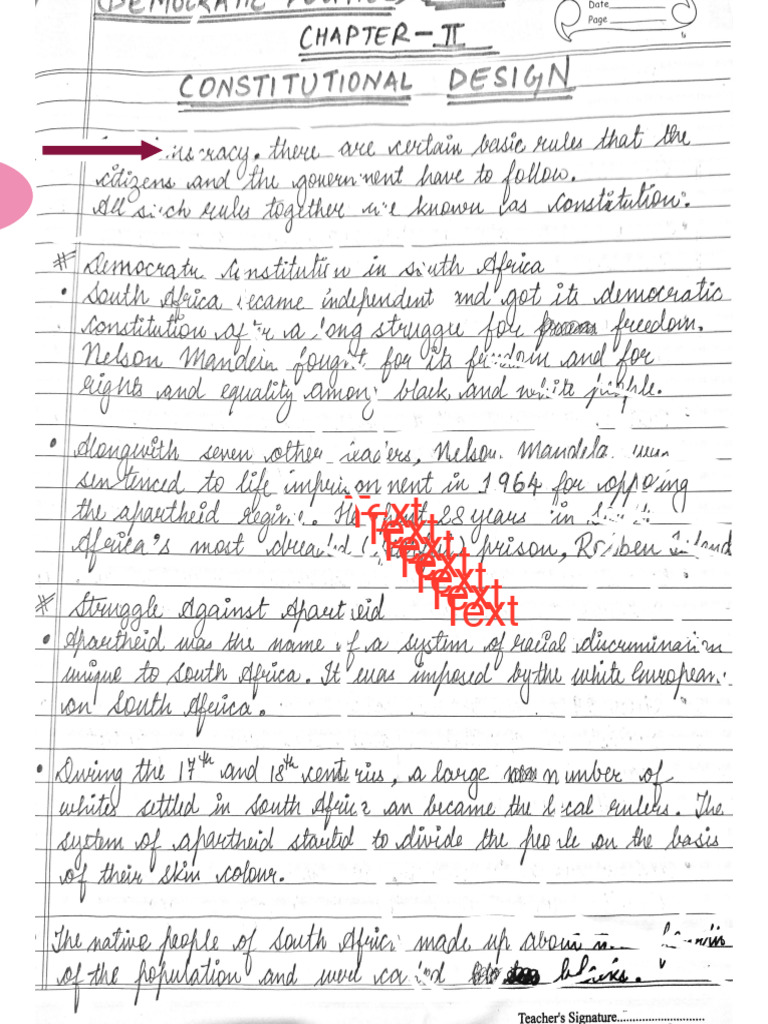 DEMOCRATIC
Date
Page
CHAPTER-II
CONSTITUTIONAL DESIGN
there are certain basic rules that the
citizens and the government have to follow.
All such rules together are known as constitution.
# Democratic Constitution in South Africa
• South Africa became independent and got its democratic
constitution after a long struggle for freedom.
Nelson Mandela fought for its freedom and for
rights and equality among black and white people.
• Alongwith seven other leaders, Nelson Mandela was
sentenced to life imprisonment in 1964 for opposing
the apartheid regime. He 28 years in
Africa's most dreaded prison, Robben Island
Text
Text
Text
Text
Text
Text
Text
# Struggle Against Apartheid
• Apartheid was the name of a system of racial discrimination
unique to South Africa. It was imposed by the white European
on South Africa.
• During the 17th and 18th centuries, a large number of
whites settled in South Africa an became the local rulers. The
system of apartheid started to divide the people on the basis
of their skin colour.
The native people of South Africa made up about
of the population and were called blacks.
Teacher's Signature